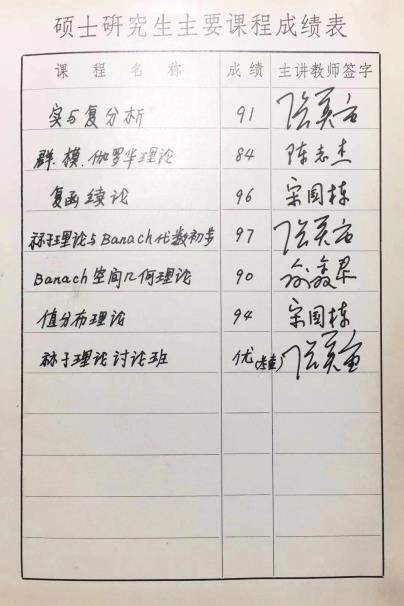 硕士研究生主要课程成绩表
课程名称 成绩 主讲教师签字
实与复分析 91
群.模.伽罗华理论 84 陈志杰
复函续论 96 宋国栋
算子理论与Banach代数初步 97
Banach空间几何理论 90
值分布理论 94 宋国栋
算子理论讨论班 优(考查)